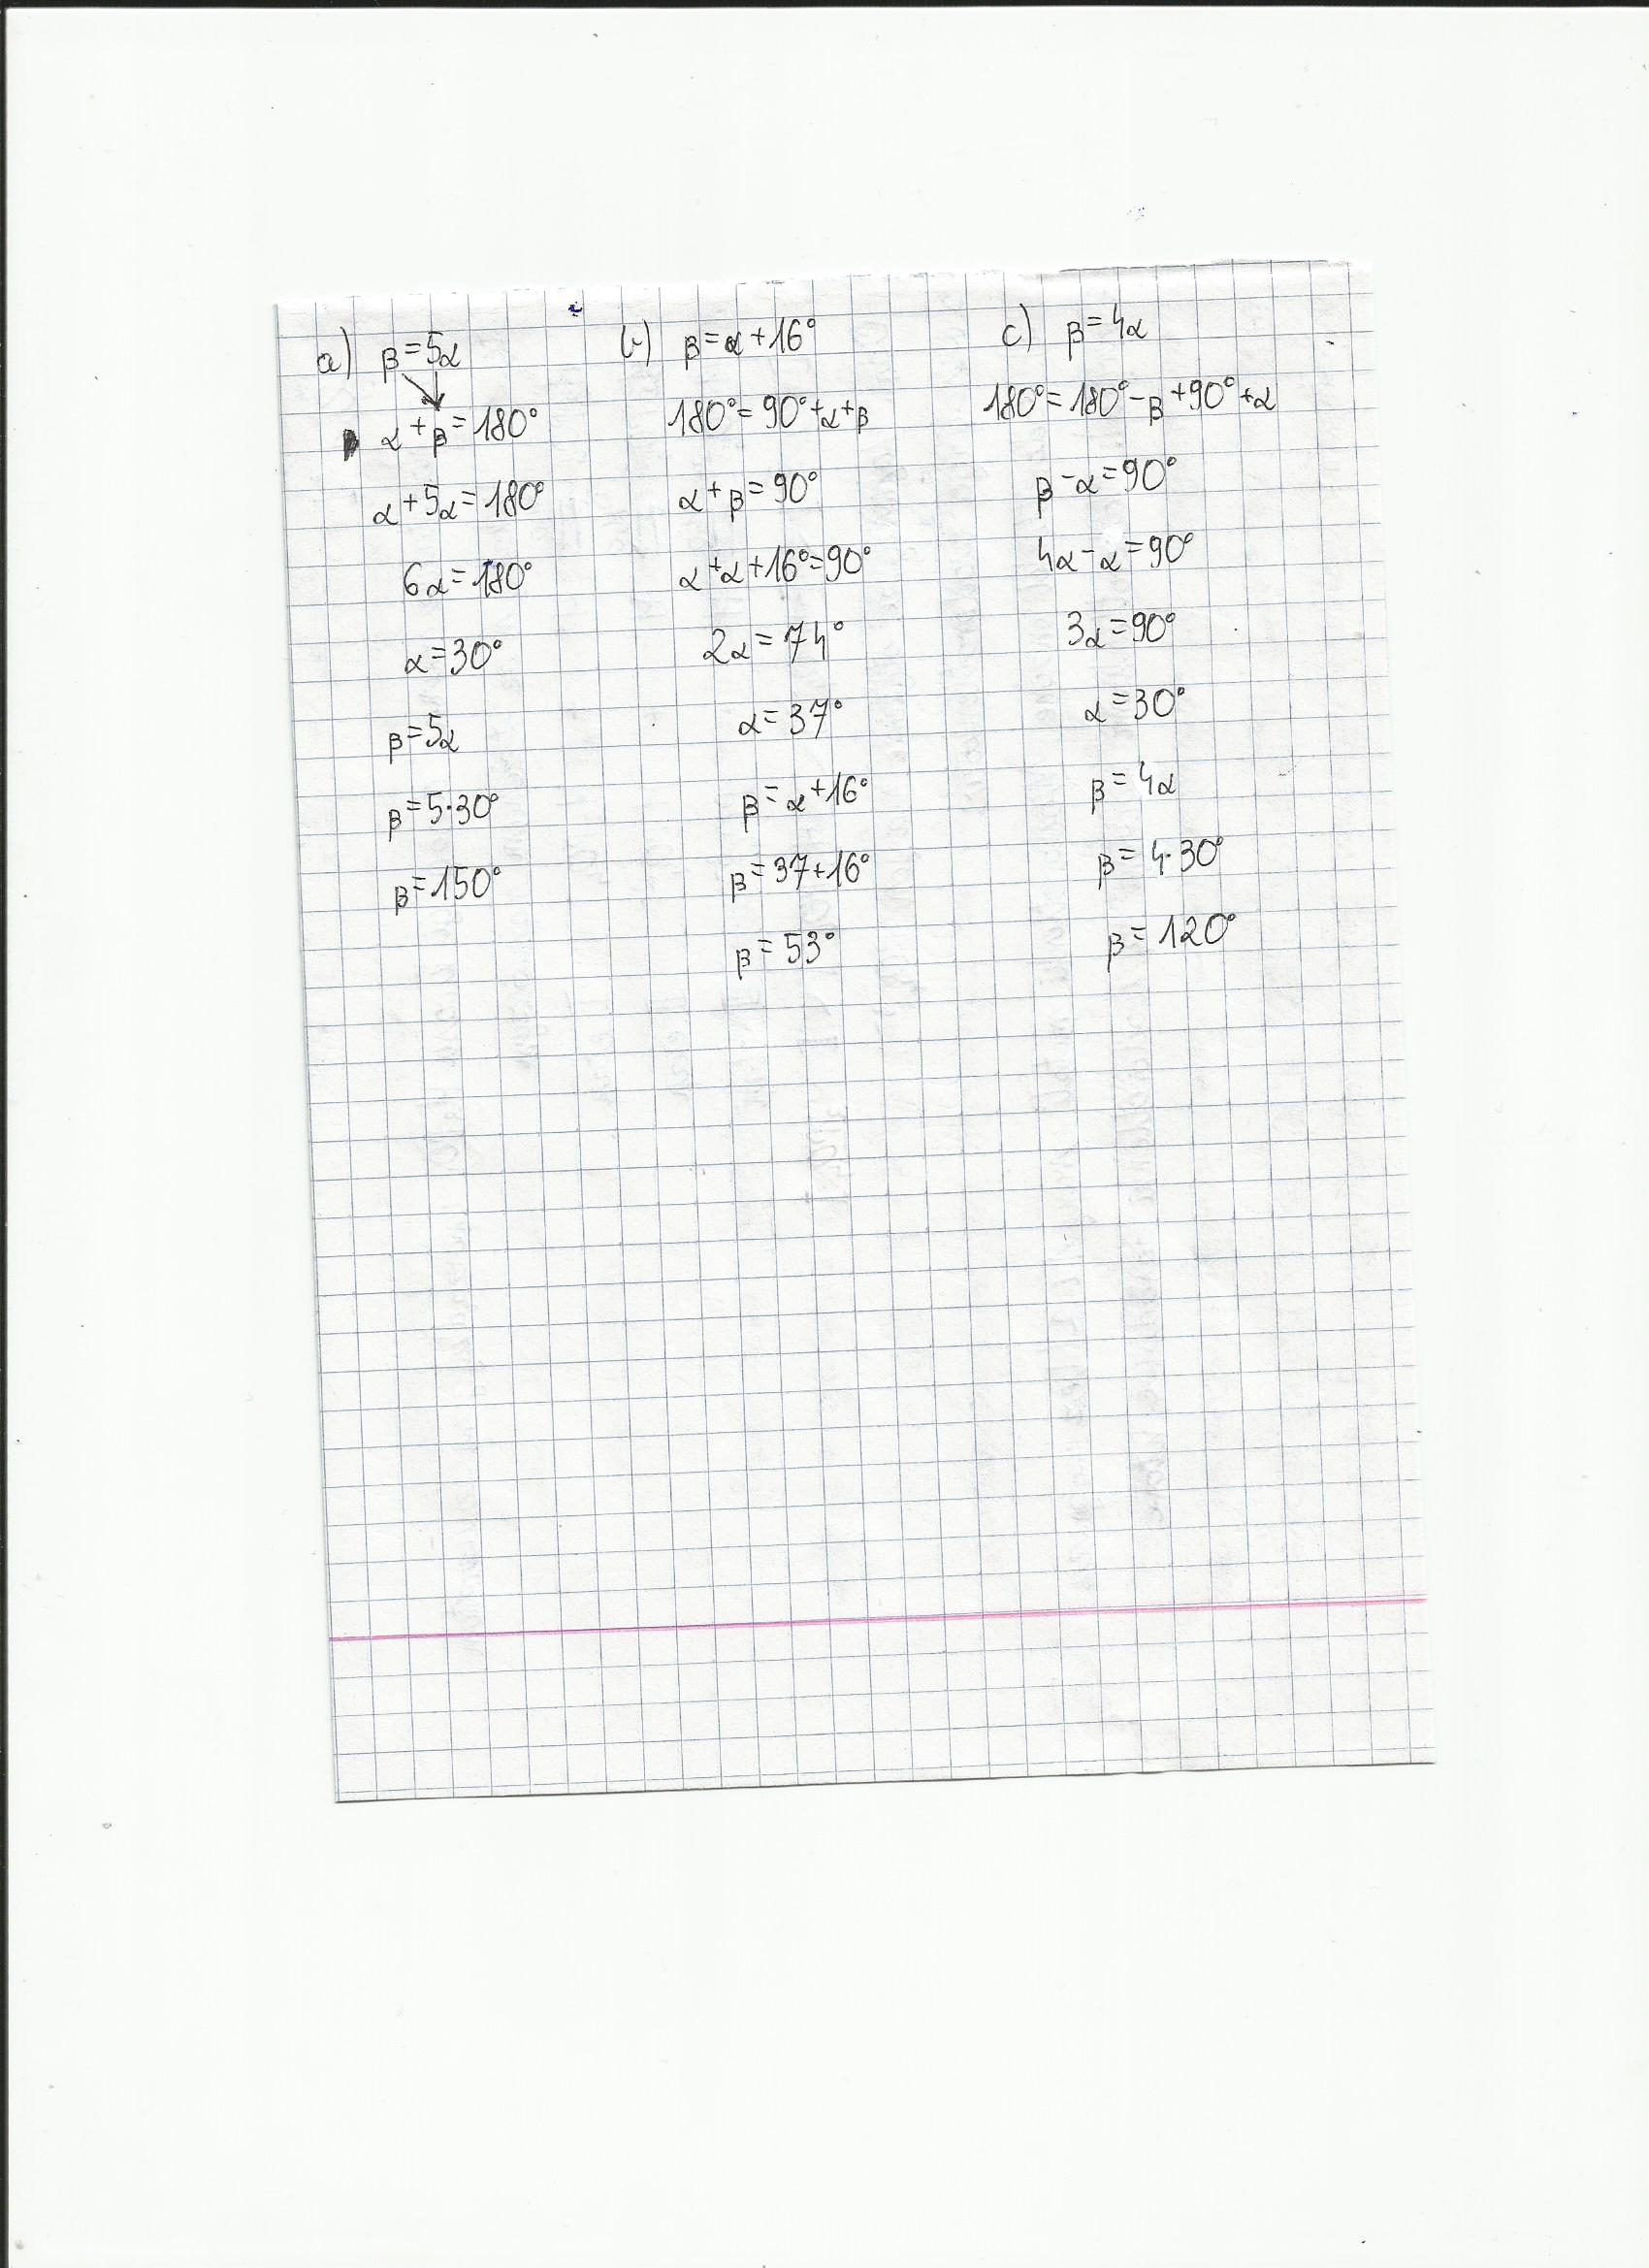 a) β=5α
α+β=180°
α+5α=180°
6α=180°
α=30°
β=5α
β=5·30°
β=150°
b) β=α+16°
180°=90°+α+β
α+β=90°
α+α+16°=90°
2α=74°
α=37°
β=α+16°
β=37+16°
β=53°
c) β=4α
180°=180°-β+90°+α
β-α=90°
4α-α=90°
3α=90°
α=30°
β=4α
β=4·30°
β=120°